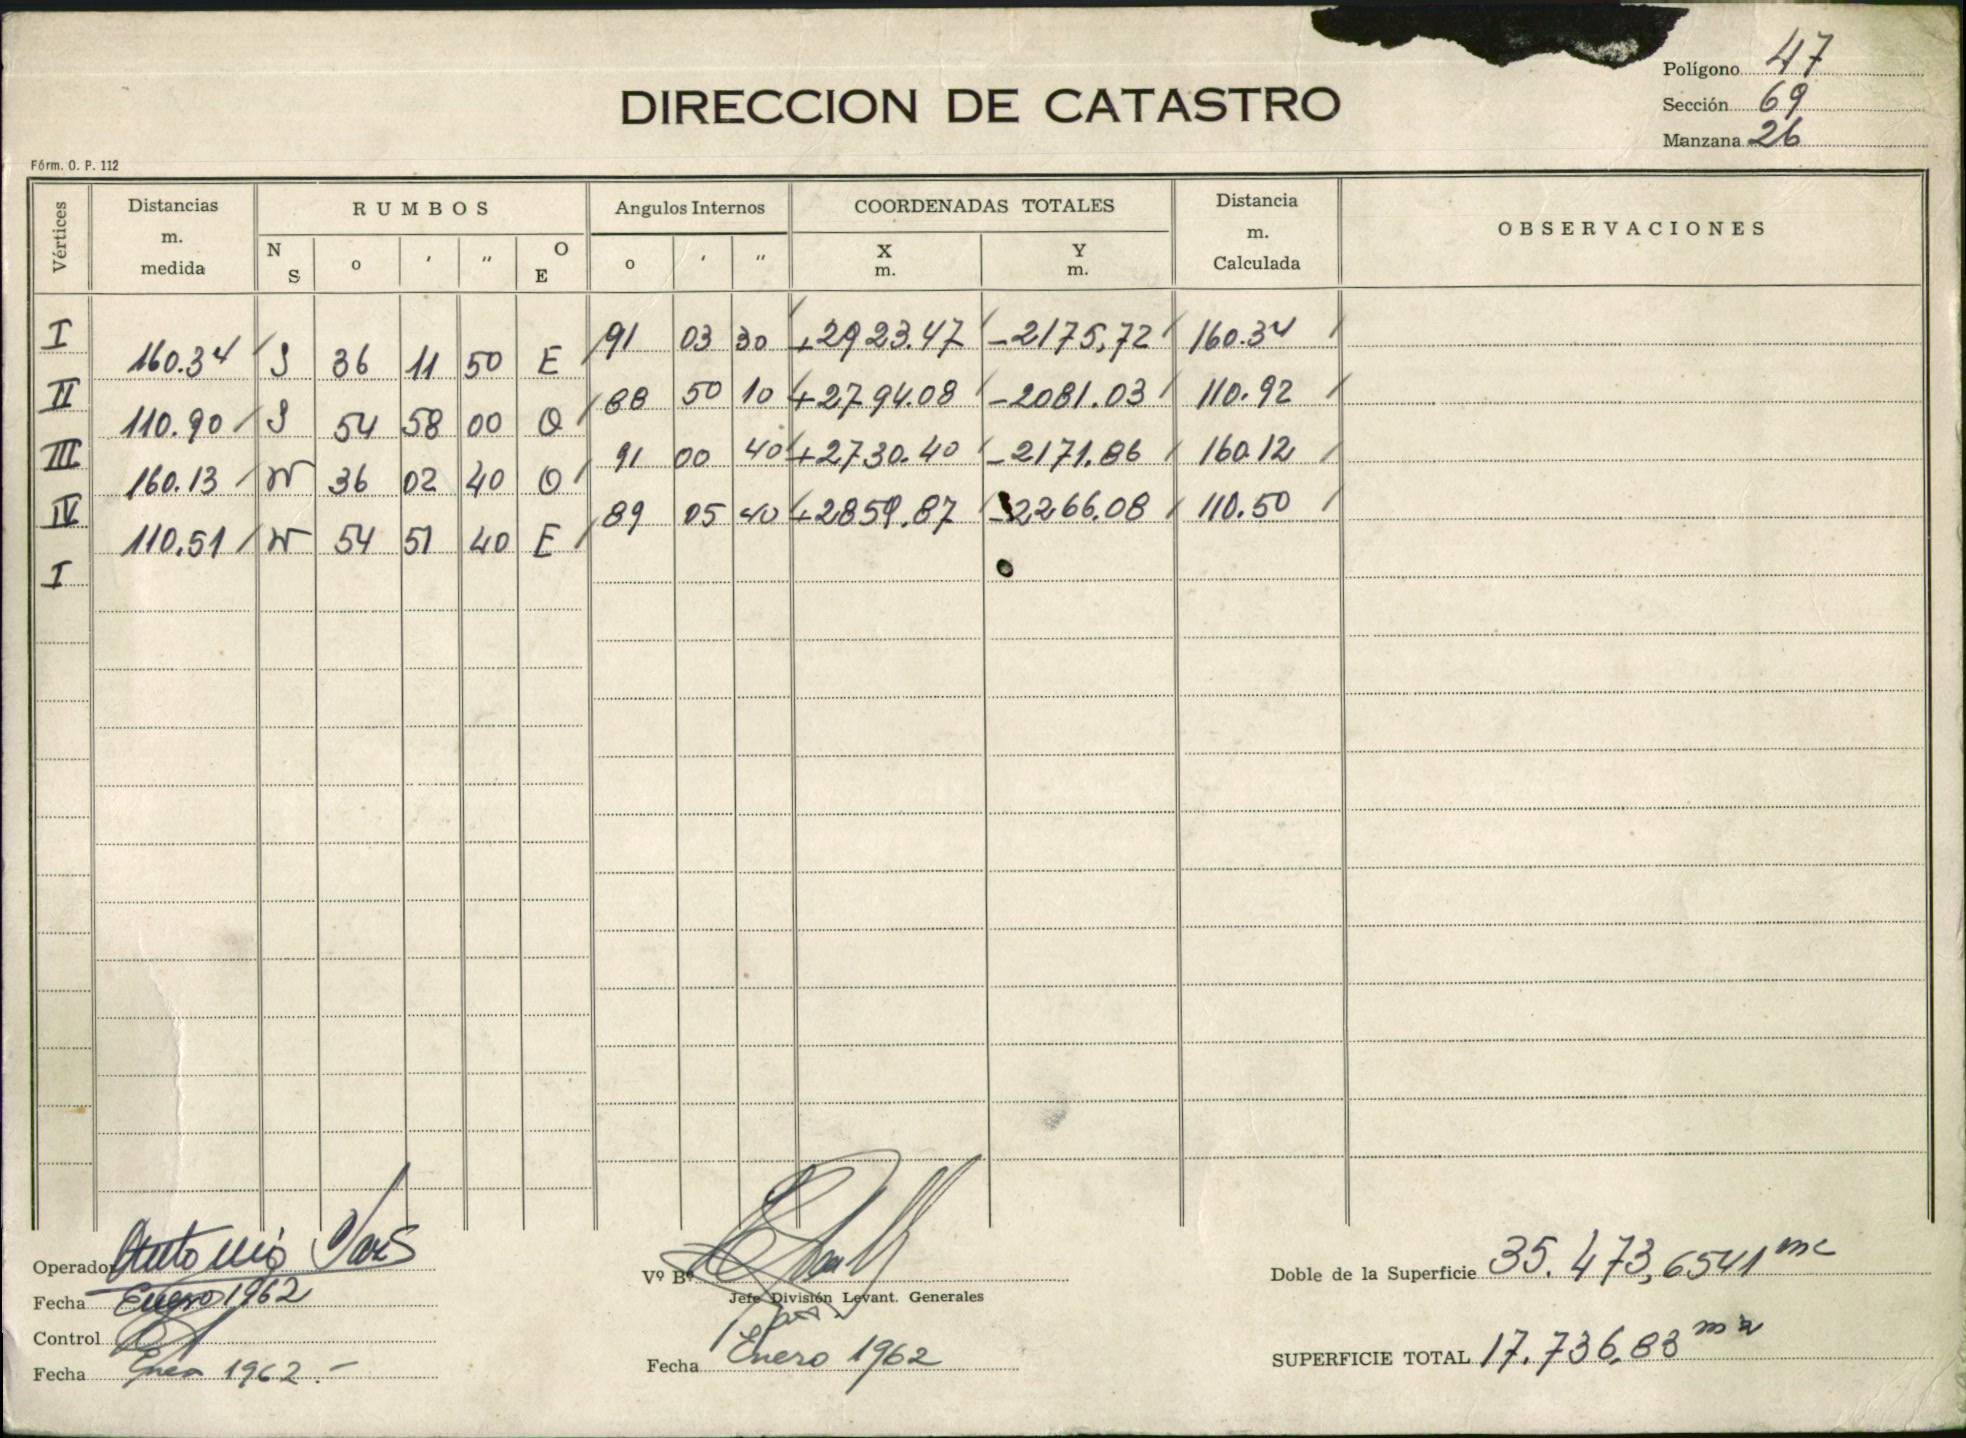 Polígono 47
DIRECCION DE CATASTRO
Sección 69
Manzana 26
Fórm. O. P. 112
Vértices Distancias m. medida RUMBOS N S o ′ ″ O E Angulos Internos o ′ ″ COORDENADAS TOTALES X m. Y m. Distancia m. Calculada OBSERVACIONES
I 91 03 30 +2923.47 -2175,72 160.34
160.34 S 36 11 50 E
II 88 50 10 +2794.08 -2081.03 110.92
110.90 S 54 58 00 O
III 91 00 40 +2730.40 -2171.86 160.12
160.13 N 36 02 40 O
IV 89 05 40 +2859.87 -2266.08 110.50
110.51 N 54 51 40 E
I
Operador Antonio
Fecha Enero 1962
Control
Fecha Enero 1962.-
Vº Bº
Jefe División Levant. Generales
Fecha Enero 1962
Doble de la Superficie 35.473,6541 m2
SUPERFICIE TOTAL 17.736,83 m2